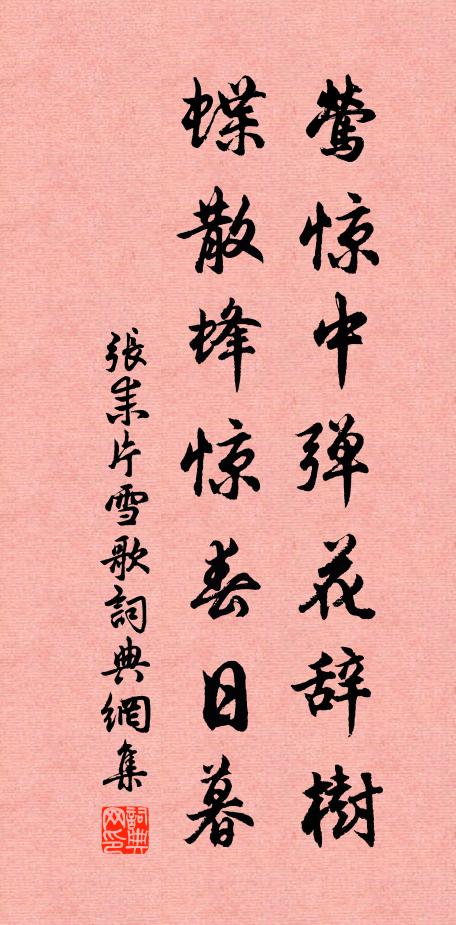 莺惊中弹花辞樹
蝶散蜂惊春日暮
張耒片雪歌詞典網集
詞典网印